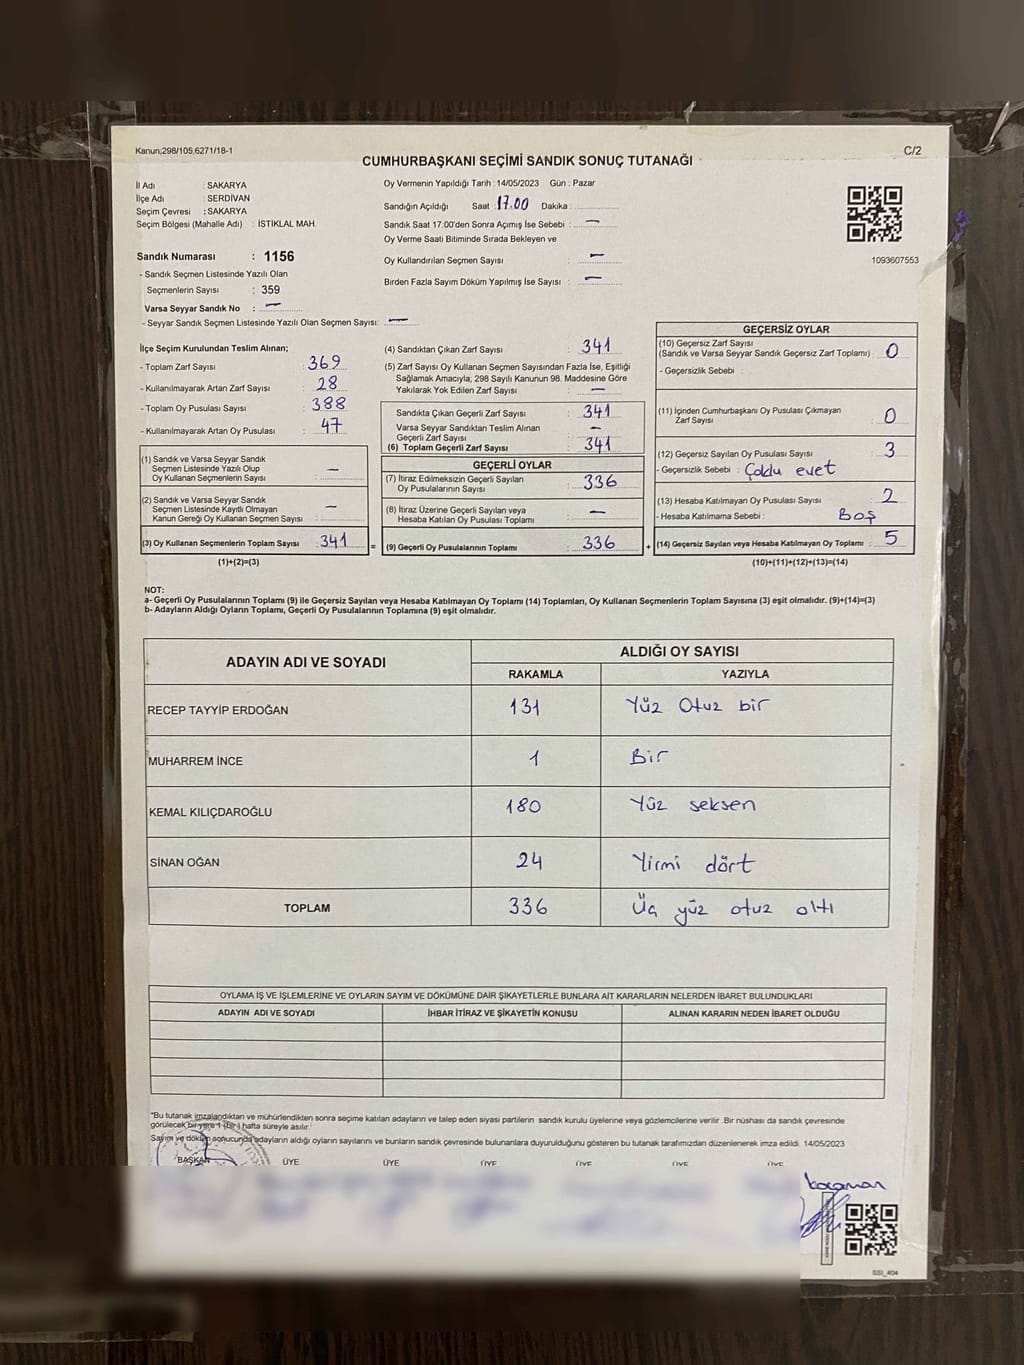 Kanun;298/105,6271/18-1
C/2
CUMHURBAŞKANI SEÇİMİ SANDIK SONUÇ TUTANAĞI
İl Adı : SAKARYA
İlçe Adı : SERDİVAN
Seçim Çevresi : SAKARYA
Seçim Bölgesi (Mahalle Adı) : İSTİKLAL MAH.
Sandık Numarası : 1156
- Sandık Seçmen Listesinde Yazılı Olan
Seçmenlerin Sayısı : 359
Varsa Seyyar Sandık No : —
- Seyyar Sandık Seçmen Listesinde Yazılı Olan Seçmen Sayısı: —
Oy Vermenin Yapıldığı Tarih : 14/05/2023 Gün : Pazar
Sandığın Açıldığı Saat : 17.00 Dakika :
Sandık Saat 17:00'den Sonra Açımış İse Sebebi : —
Oy Verme Saati Bitiminde Sırada Bekleyen ve
Oy Kullandırılan Seçmen Sayısı : —
Birden Fazla Sayım Döküm Yapılmış İse Sayısı : —
1093607553
İlçe Seçim Kurulundan Teslim Alınan;
- Toplam Zarf Sayısı : 369
- Kullanılmayarak Artan Zarf Sayısı : 28
- Toplam Oy Pusulası Sayısı : 388
- Kullanılmayarak Artan Oy Pusulası : 47
(1) Sandık ve Varsa Seyyar Sandık
Seçmen Listesinde Yazılı Olup
Oy Kullanan Seçmenlerin Sayısı : —
(2) Sandık ve Varsa Seyyar Sandık
Seçmen Listesinde Kayıtlı Olmayan
Kanun Gereği Oy Kullanan Seçmen Sayısı : —
(3) Oy Kullanan Seçmenlerin Toplam Sayısı : 341 =
(1)+(2)=(3)
(4) Sandıktan Çıkan Zarf Sayısı : 341
(5) Zarf Sayısı Oy Kullanan Seçmen Sayısından Fazla İse, Eşitliği
Sağlamak Amacıyla; 298 Sayılı Kanunun 98. Maddesine Göre
Yakılarak Yok Edilen Zarf Sayısı : —
Sandıkta Çıkan Geçerli Zarf Sayısı : 341
Varsa Seyyar Sandıktan Teslim Alınan
Geçerli Zarf Sayısı : —
(6) Toplam Geçerli Zarf Sayısı : 341
GEÇERLİ OYLAR
(7) İtiraz Edilmeksizin Geçerli Sayılan
Oy Pusulalarının Sayısı : 336
(8) İtiraz Üzerine Geçerli Sayılan veya
Hesaba Katılan Oy Pusulası Toplamı : —
(9) Geçerli Oy Pusulalarının Toplamı : 336 +
GEÇERSİZ OYLAR
(10) Geçersiz Zarf Sayısı
(Sandık ve Varsa Seyyar Sandık Geçersiz Zarf Toplamı) : 0
- Geçersizlik Sebebi :
(11) İçinden Cumhurbaşkanı Oy Pusulası Çıkmayan
Zarf Sayısı : 0
(12) Geçersiz Sayılan Oy Pusulası Sayısı : 3
- Geçersizlik Sebebi : Çoklu evet
(13) Hesaba Katılmayan Oy Pusulası Sayısı : 2
- Hesaba Katılmama Sebebi : Boş
(14) Geçersiz Sayılan veya Hesaba Katılmayan Oy Toplamı : 5
(10)+(11)+(12)+(13)=(14)
NOT:
a- Geçerli Oy Pusulalarının Toplamı (9) ile Geçersiz Sayılan veya Hesaba Katılmayan Oy Toplamı (14) Toplamları, Oy Kullanan Seçmenlerin Toplam Sayısına (3) eşit olmalıdır. (9)+(14)=(3)
b- Adayların Aldığı Oyların Toplamı, Geçerli Oy Pusulalarının Toplamına (9) eşit olmalıdır.
ADAYIN ADI VE SOYADI
ALDIĞI OY SAYISI
RAKAMLA YAZIYLA
RECEP TAYYİP ERDOĞAN 131 Yüz Otuz bir
MUHARREM İNCE 1 Bir
KEMAL KILIÇDAROĞLU 180 Yüz seksen
SİNAN OĞAN 24 Yirmi dört
TOPLAM 336 Üç yüz otuz altı
OYLAMA İŞ VE İŞLEMLERİNE VE OYLARIN SAYIM VE DÖKÜMÜNE DAİR ŞİKAYETLERLE BUNLARA AİT KARARLARIN NELERDEN İBARET BULUNDUKLARI
ADAYIN ADI VE SOYADI İHBAR İTİRAZ VE ŞİKAYETİN KONUSU ALINAN KARARIN NEDEN İBARET OLDUĞU
*Bu tutanak imzalandıktan ve mühürlendikten sonra seçime katılan adayların ve talep eden siyasi partilerin sandık kurulu üyelerine veya gözlemcilerine verilir. Bir nüshası da sandık çevresinde
görülecek bir yere 1 (bir) hafta süreyle asılır.
Sayım ve döküm sonucunda adayların aldığı oyların sayılarını ve bunların sandık çevresinde bulunanlara duyurulduğunu gösteren bu tutanak tarafımızdan düzenlenerek imza edildi. 14/05/2023
BAŞKAN ÜYE ÜYE ÜYE ÜYE ÜYE ÜYE
SSI_404